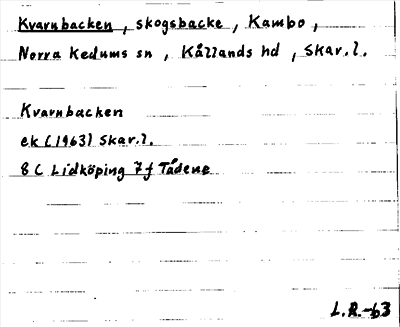 Kvarnbacken, skogsbacke, Kambo,
Norra Kedums sn, Kållands hd, Skar.l.
Kvarnbacken
ek (1963) Skar.l.
8 C Lidköping 7f Tådene
L.R.-63